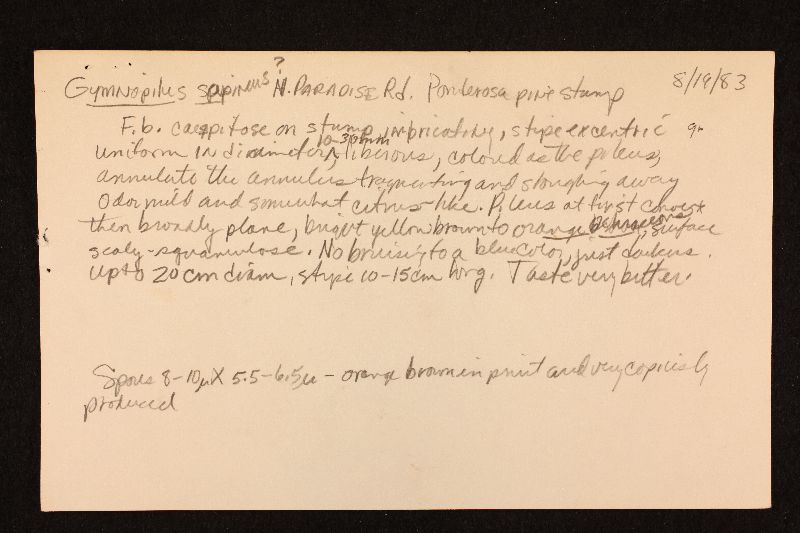 Gymnopilus sapineus ? N. PARADISE Rd. Ponderosa pine stump 8/19/83
F.b. caespitose on stump, imbricating, stipe excentric
uniform in diameter, 10-30mm fibrous, colored as the pileus,
annulate the annulus fragmenting and sloughing away
Odor mild and somewhat citrus-like. Pileus at first convex
then broadly plane, bright yellow brown to orange, surface
scaly-squamulose. No bruising to a blue color, just darkens.
up to 20 cm diam, stipe 10-15cm long. Taste very bitter.
Spores 8-10µ X 5.5-6.5µ - orange brown in print and very copiously
produced